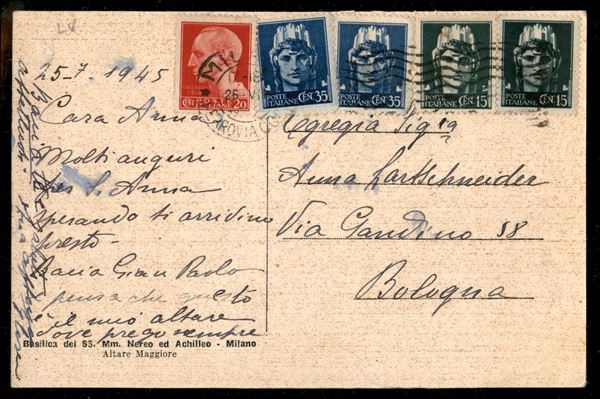 LV
25-7-1945
Cara Anna
Molti auguri
per S. Anna
sperando ti arridino
presto -
Bacia Gian Paolo
pensa che questo
è il mio altare
dove prego sempre
Basilica dei SS. Mm. Nereo ed Achilleo - Milano
Altare Maggiore
20
POSTE ITALIANE CEN. 35
POSTE ITALIANE CEN. 35
POSTE ITALIANE CEN. 15
POSTE ITALIANE CEN. 15
MIL
FERROVIA
Egregia Sig.ra
Anna Hartschneider
Via Gandino 58
Bologna